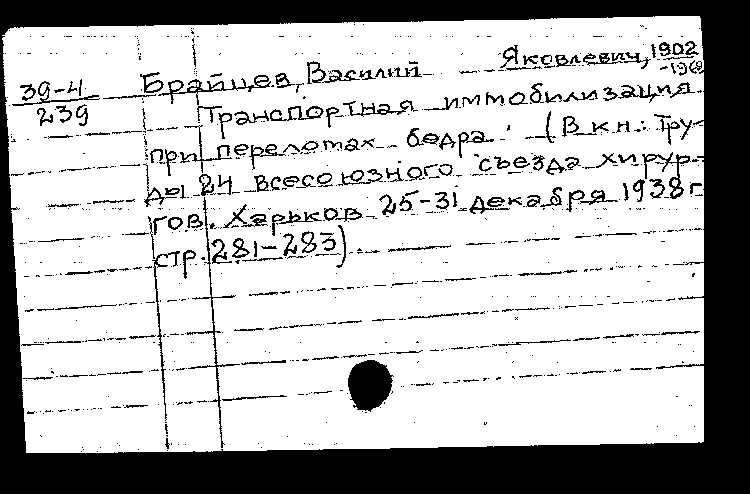 39-4
239
Брайцев, Василий Яковлевич, 1902
Транспортная иммобилизация
при переломах бедра. (В кн.: Тру-
ды 24 всесоюзного съезда хирур-
гов. Харьков 25-31 декабря 1938 г
стр. 281-283).